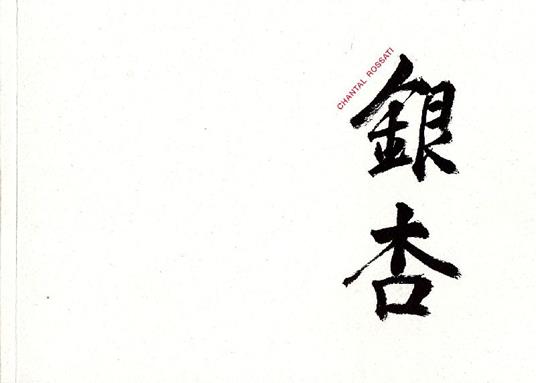 CHANTAL ROSSATI
銀杏